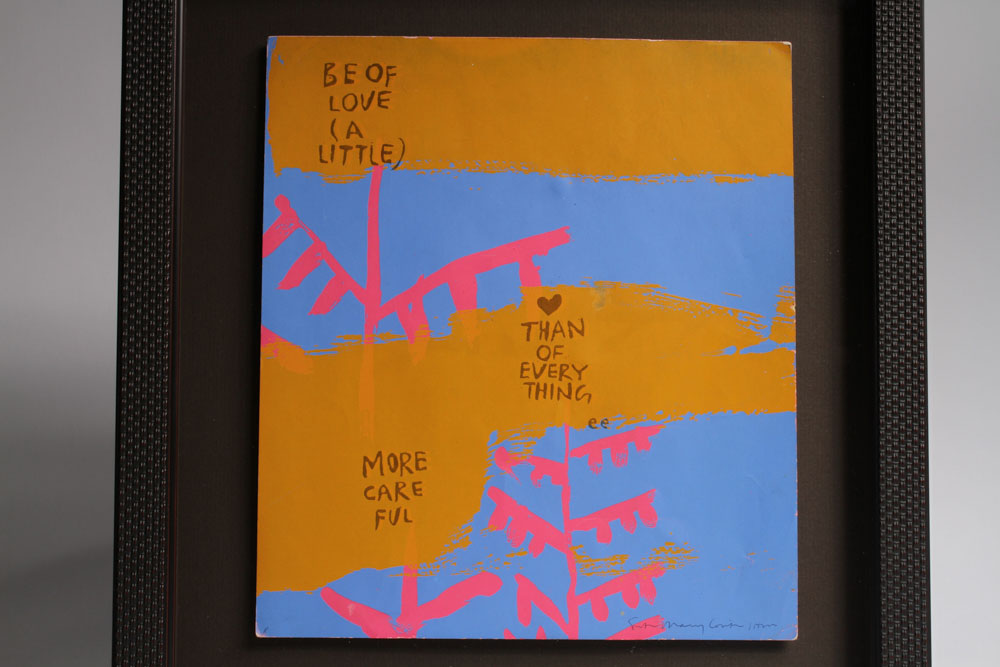 BE OF
LOVE
(A
LITTLE)
♥
THAN
OF
EVERY
THING
ee
MORE
CARE
FUL
Sister Mary Corita